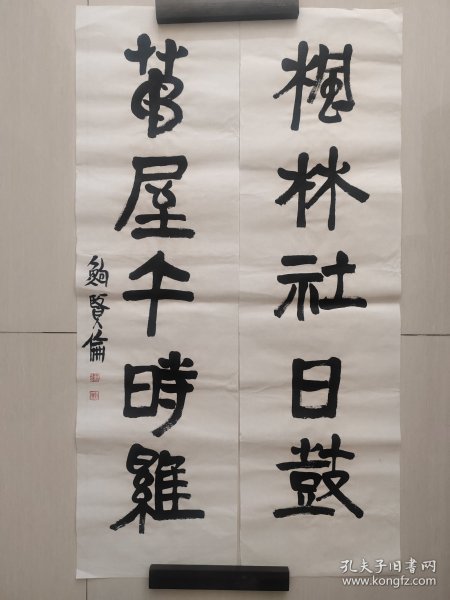 楓林社日鼓
茅屋午時雞
鮑賢倫
孔夫子旧书网
www.kongfz.com